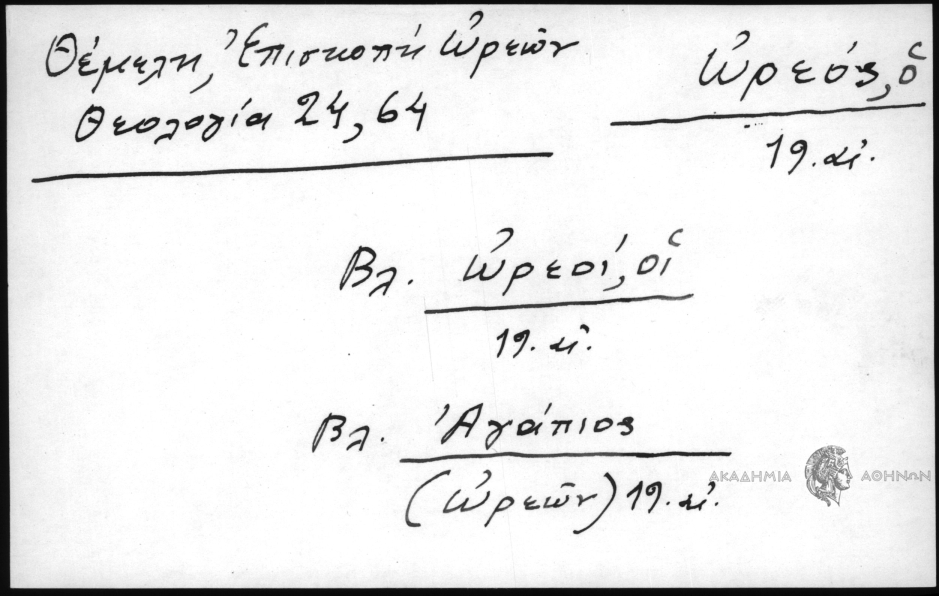 Θέμελη, Ἐπισκοπή Ὠρεῶν
Θεολογία 24, 64
Ὠρεός, ὁ
19. αἰ.
Βλ. Ὠρεοί, οἱ
19. αἰ.
Βλ. Ἀγάπιος
(Ὠρεῶν) 19. αἰ.
ΑΚΑΔΗΜΙΑ ΑΘΗΝΩΝ